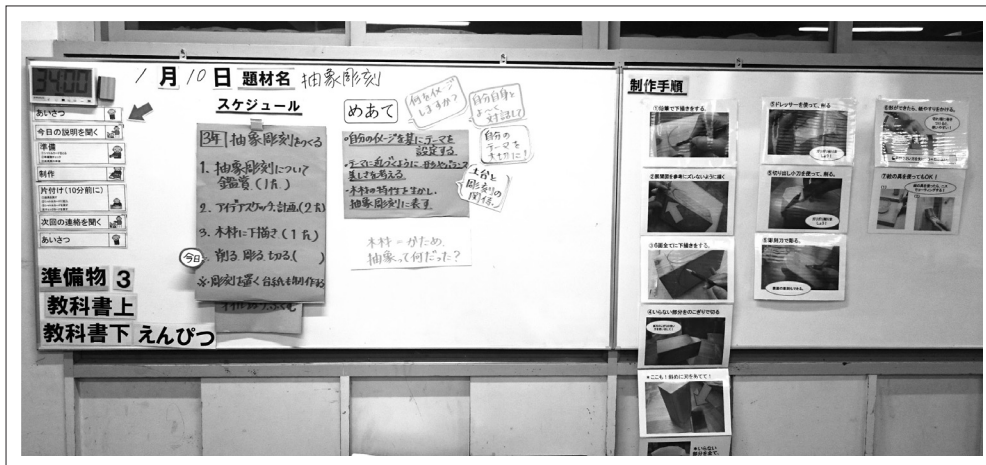 34:00
1月10日 題材名 抽象彫刻
あいさつ
今日の説明を聞く
準備
制作
片付け(10分前に)
次回の連絡を聞く
あいさつ
準備物 3
教科書上
教科書下 えんぴつ
スケジュール
3年 抽象彫刻をつくる
1. 抽象彫刻について
鑑賞(1h)
2. アイデアスケッチ、計画(2h)
3. 木材に下描き(1h)
今日
削る、彫る、切る( )
※彫刻を置く台
めあて
何をイメージ
しますか?
自分自身と
対話して
自分の
テーマを
大切に!
・自分のイメージを基にテーマを
設定する。
・テーマに近づくように形やバランス
美しさを考える
・木材の特性を生かし、
抽象彫刻に表す。
土台と
彫刻の
関係
木材=かため、
抽象って何だった?
制作手順
①鉛筆で下描きをする。
②展開図を参考にズレないように描く
③6面全てに下描きをする。
④いらない部分をのこぎりで切る
★ここも!斜めに刃をあてて!
★いらない
部分を全て、
⑤ドレッサーを使って、削る
⑥切り出し小刀を使って、削る。
⑧彫刻刀で彫る。
⑥形ができたら、紙やすりをかける。
⑦絵の具を使ってもOK!